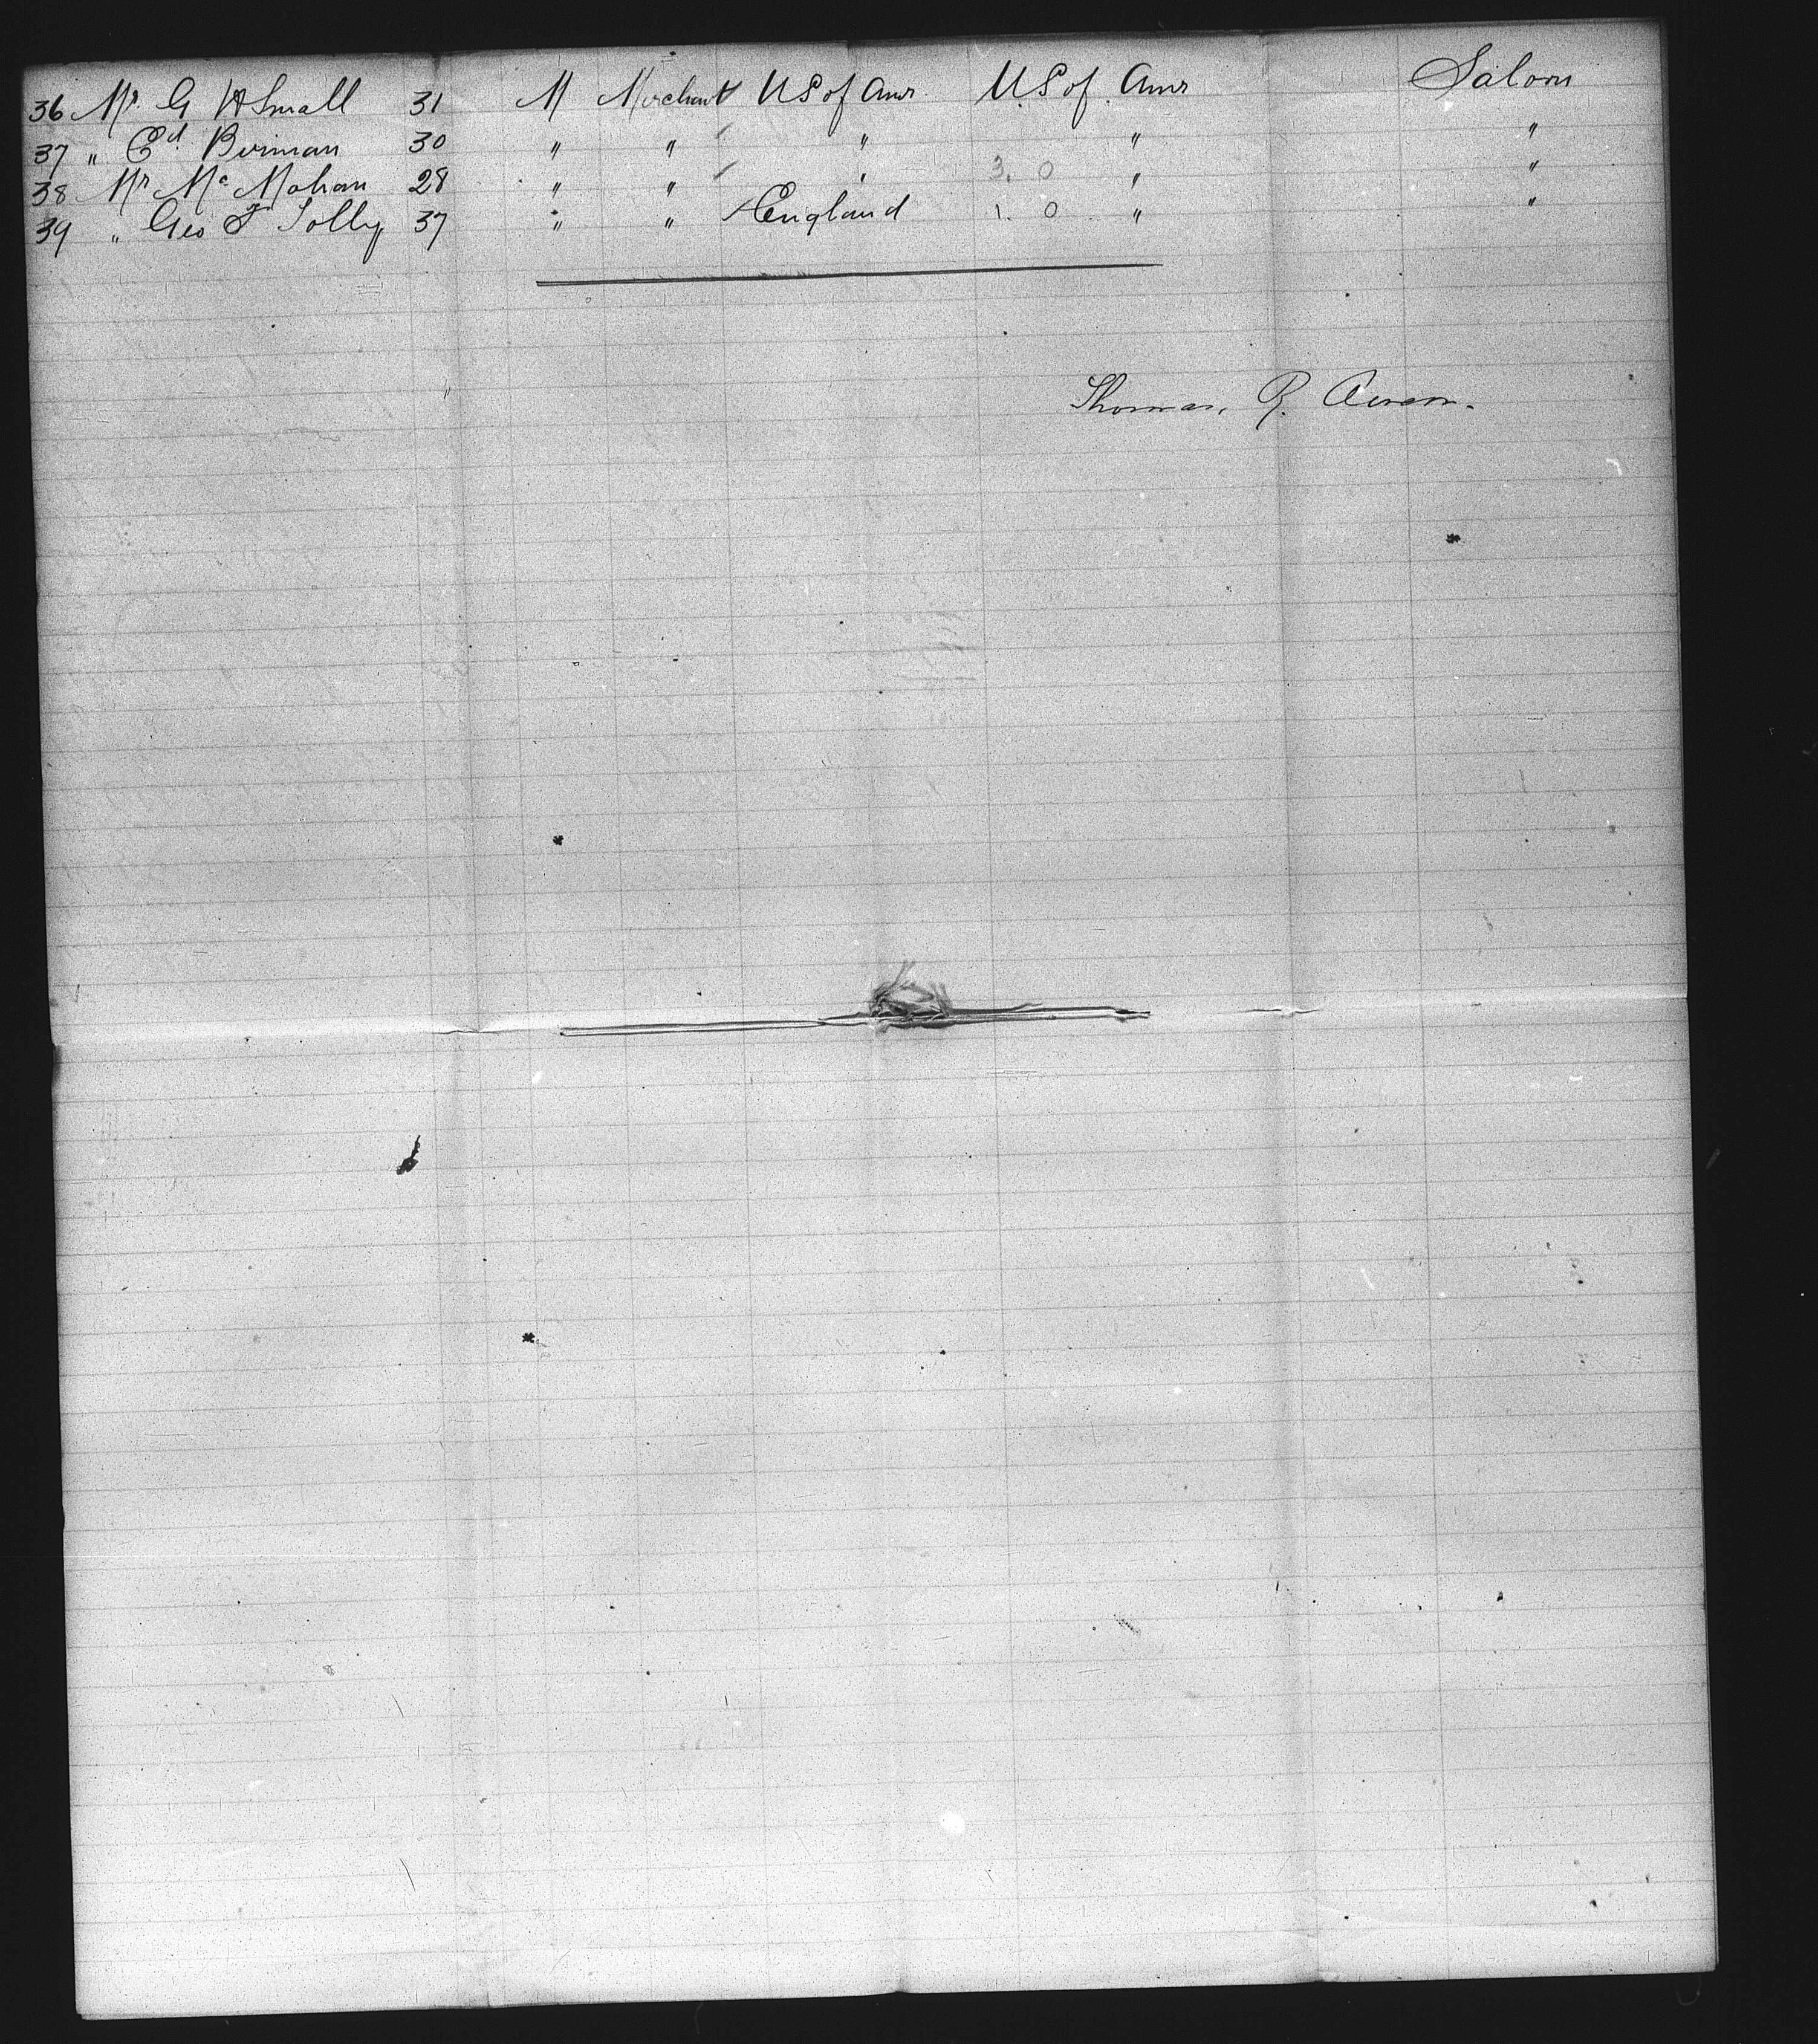 36 Mr. G H Small 31 M Merchant U S of Amr. U.S of Amr Saloon
37 " Ed. Birman 30 " " " " "
38 Mr Mc Mahan 28 " " " 3. 0 " "
39 " Geo F Tolly 37 " " England 1. 0 " "
Thomas R.